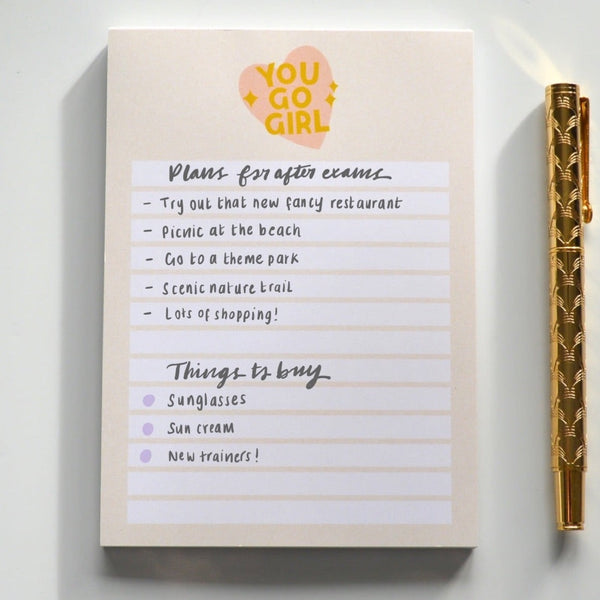 YOU
GO
GIRL
Plans for after exams
- Try out that new fancy restaurant
- Picnic at the beach
- Go to a theme park
- Scenic nature trail
- Lots of shopping!
Things to buy
Sunglasses
Sun cream
New trainers!